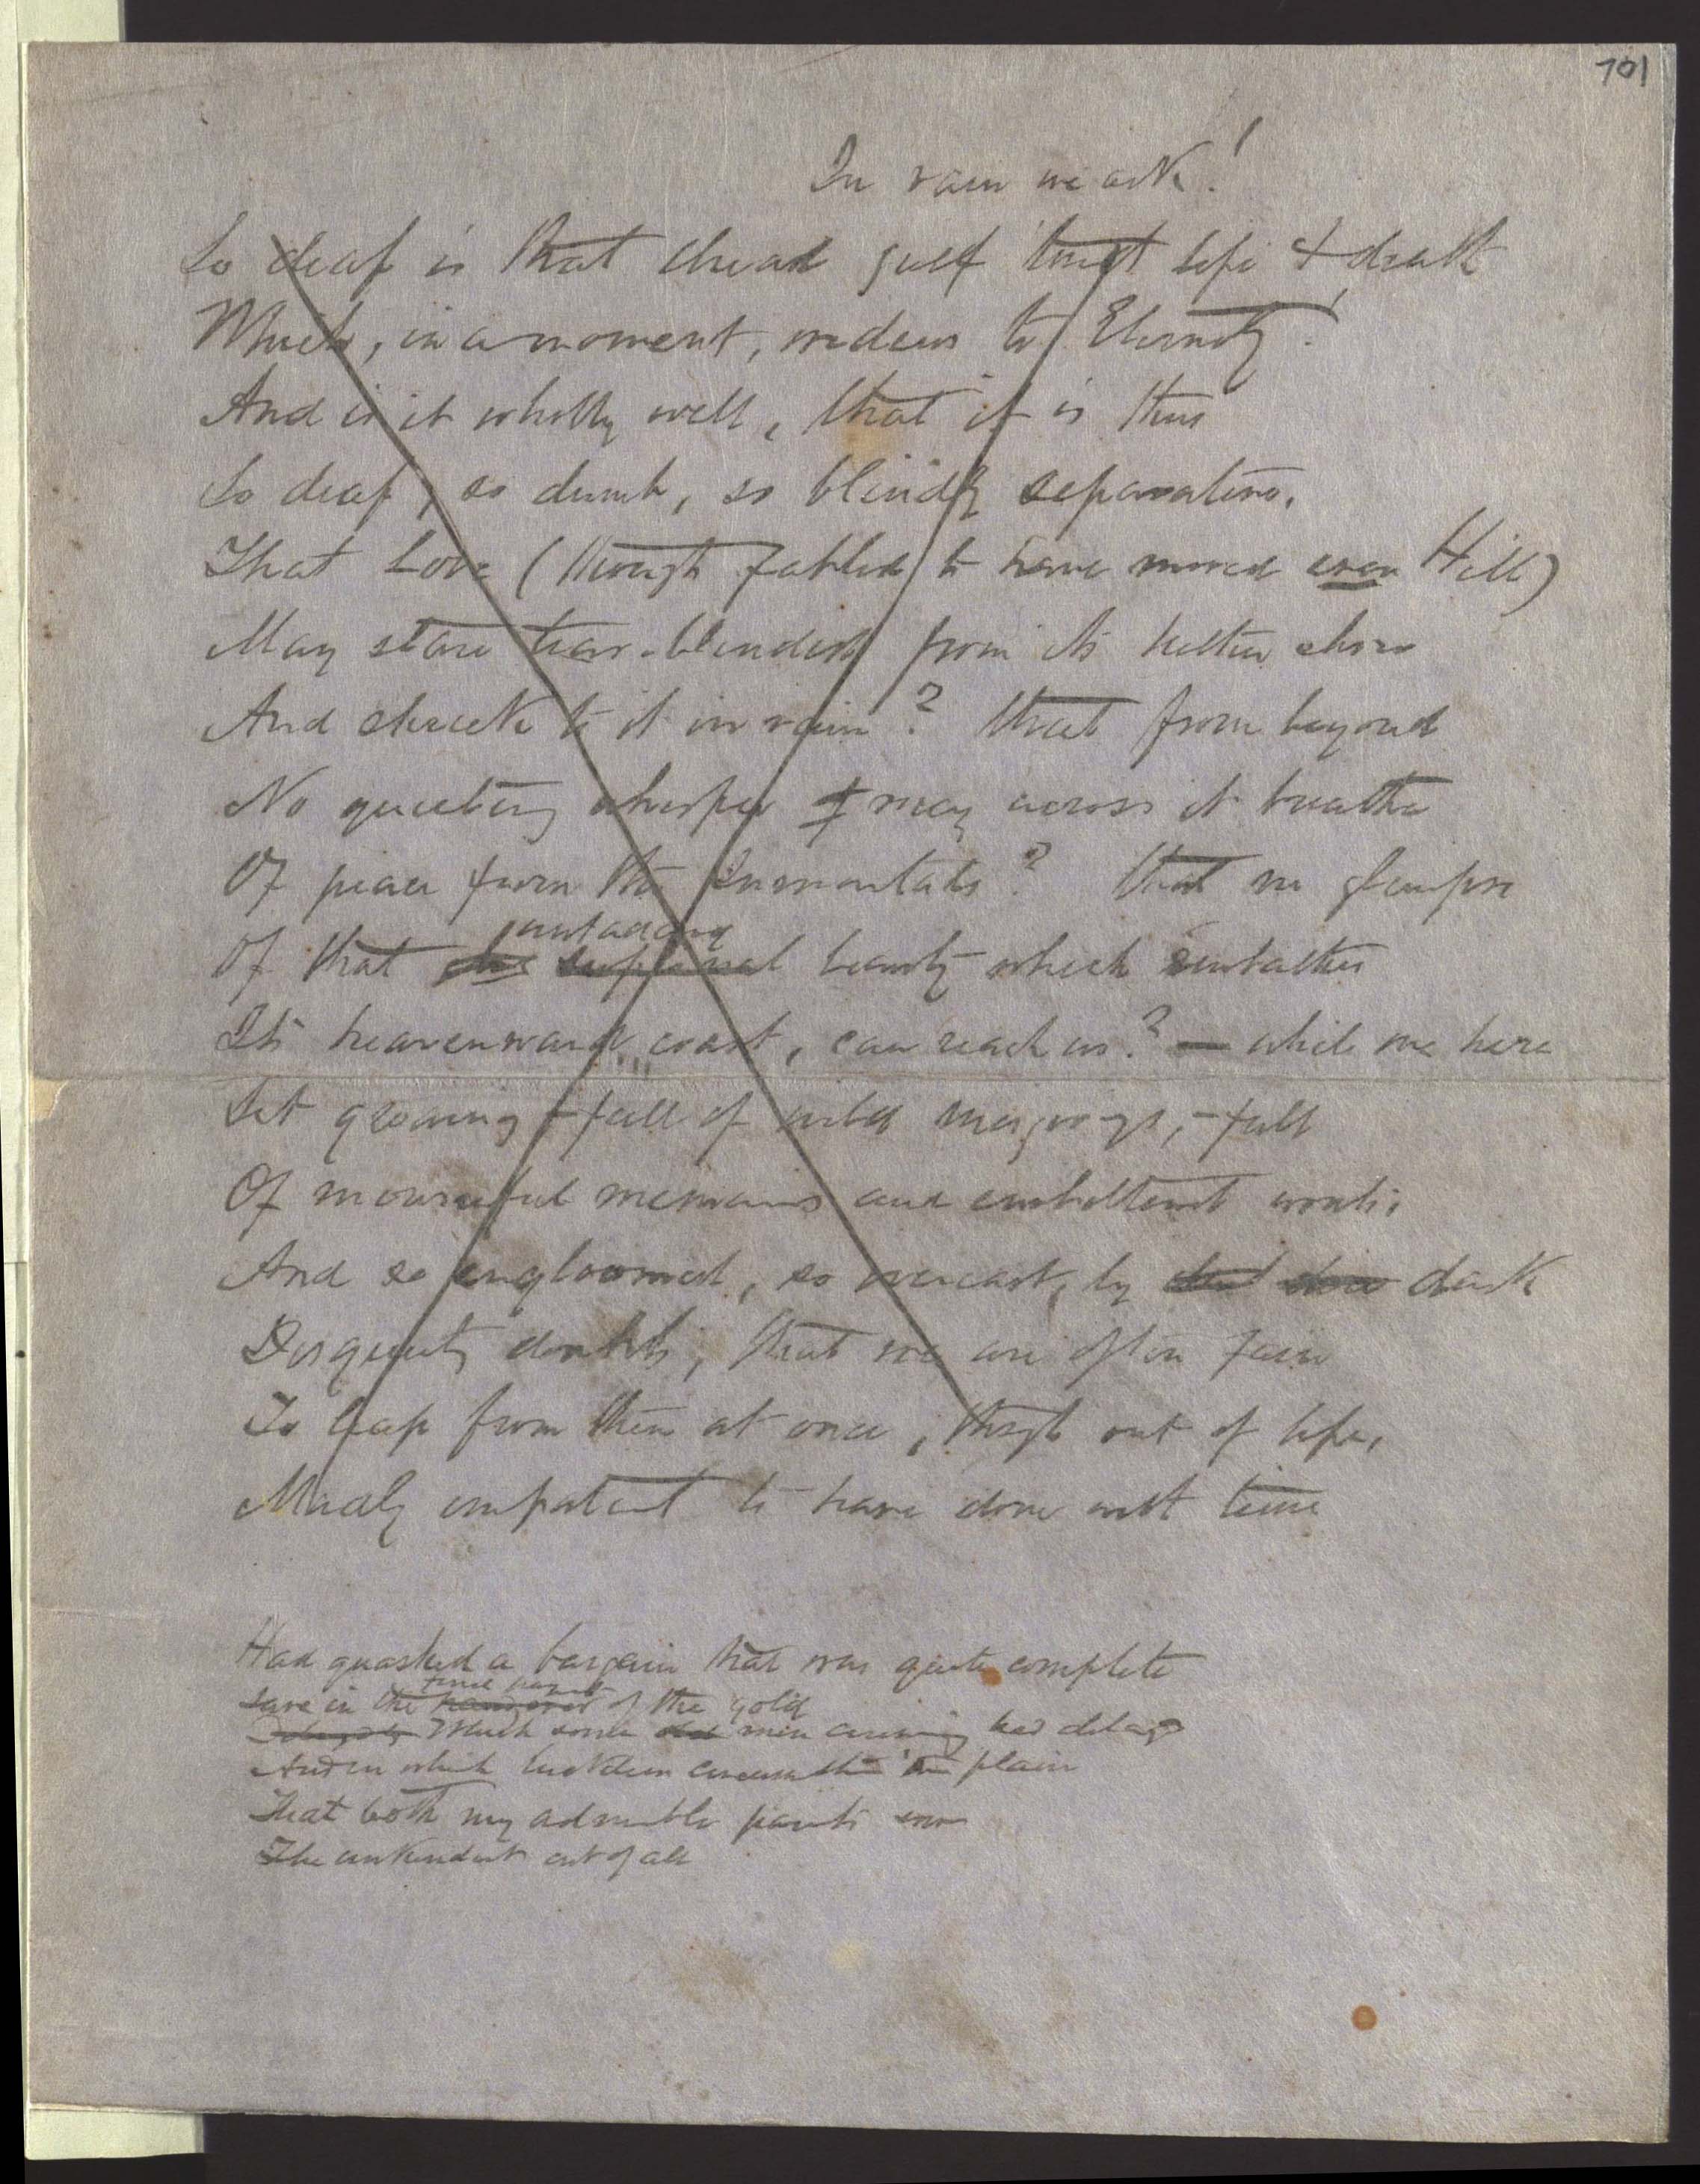 701
In vain we ask!
So deaf is that dread gulf 'twixt life & death
Which, in a moment, widens to Eternity!
And is it wholly well, that it is thus
So deaf, so dumb, so blindly separative,
That Love (though fabled to have moved even Hell)
May stare tear-blinded from its hither shore
And shriek to it in vain? that from beyond
No quieting whisper may across it breathe
Of peace from the Immortals? that no glimpse
unfading
Of that supernal beauty which
Its heavenward coast, can reach us? — while we here
Sit groaning—full of wild misgivings,—full
Of mournful memories and embittered wants;
And so engloomed, so overcast, by dark
Disquiety doubts, that we are often fain
To leap from them at once, though out of life,
Madly impatient to have done with time
Had quashed a bargain that was quite complete
Save in the of the gold
Which some men
And in which plain
That both my admirable parts
The unkindest cut of all